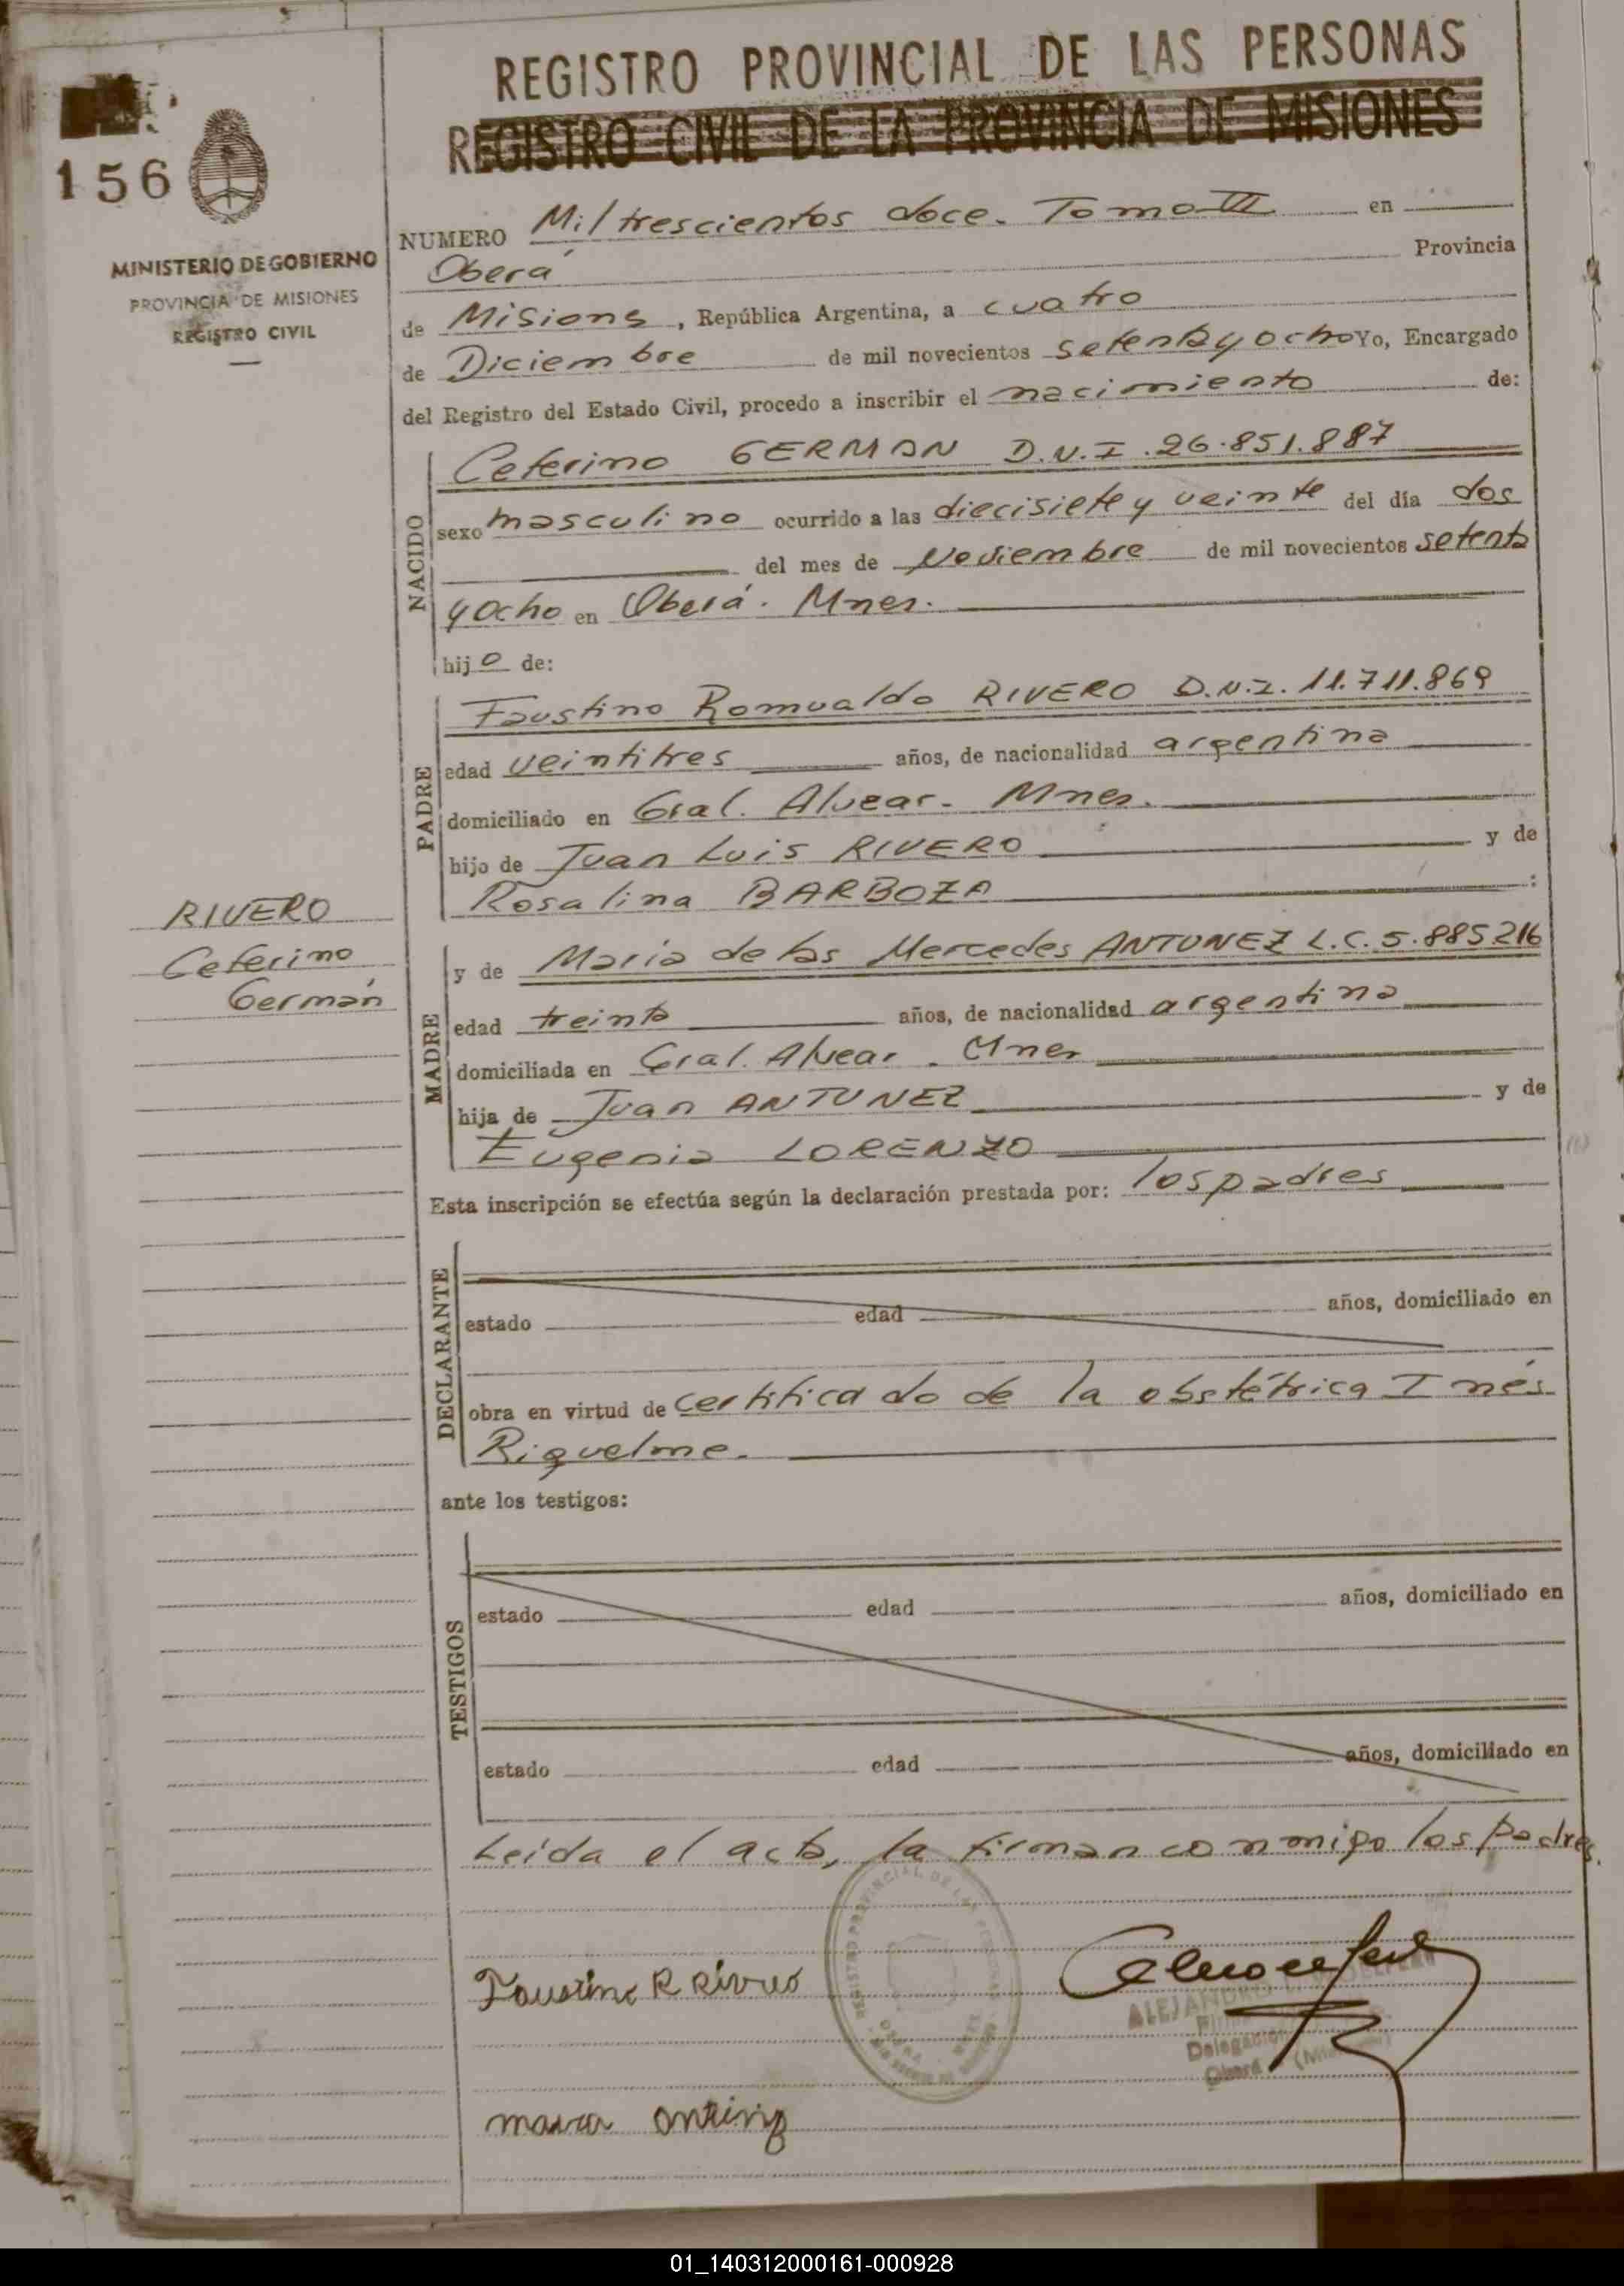 REGISTRO PROVINCIAL DE LAS PERSONAS
REGISTRO CIVIL DE LA PROVINCIA DE MISIONES
156
MINISTERIO DE GOBIERNO
PROVINCIA DE MISIONES
REGISTRO CIVIL
NUMERO Mil trescientos doce. Tomo III en
Oberá Provincia
de Misions, República Argentina, a cuatro
de Diciembre de mil novecientos setenta y ocho Yo, Encargado
del Registro del Estado Civil, procedo a inscribir el nacimiento de:
NACIDO
Ceferino GERMAN D.N.I. 26.851.887
sexo masculino ocurrido a las diecisiete y veinte del día dos
del mes de Noviembre de mil novecientos setenta
y ocho en Oberá. Mnes.
hijo de:
PADRE
Faustino Romualdo RIVERO D.N.I. 11.711.869
edad veintitres años, de nacionalidad argentina
domiciliado en Gral. Alvear. Mnes.
hijo de Juan Luis RIVERO y de
Rosalina BARBOZA :
RIVERO
Ceferino
Germán
MADRE
y de María de las Mercedes ANTUNEZ L.C. 5.885216
edad treinta años, de nacionalidad argentina
domiciliada en Gral. Alvear. Mnes
hija de Juan ANTUNEZ y de
Eugenia LORENZO
Esta inscripción se efectúa según la declaración prestada por: los padres
DECLARANTE
estado edad años, domiciliado en
obra en virtud de certificado de la obstétrica Inés
Riquelme.
ante los testigos:
TESTIGOS
estado edad años, domiciliado en
estado edad años, domiciliado en
Leída el acta, la firman conmigo los padres.
REGISTRO PROVINCIAL DE LAS PERSONAS
Faustino R Rivero
ALEJANDRO
Delegación
Oberá
maria
01_140312000161-000928